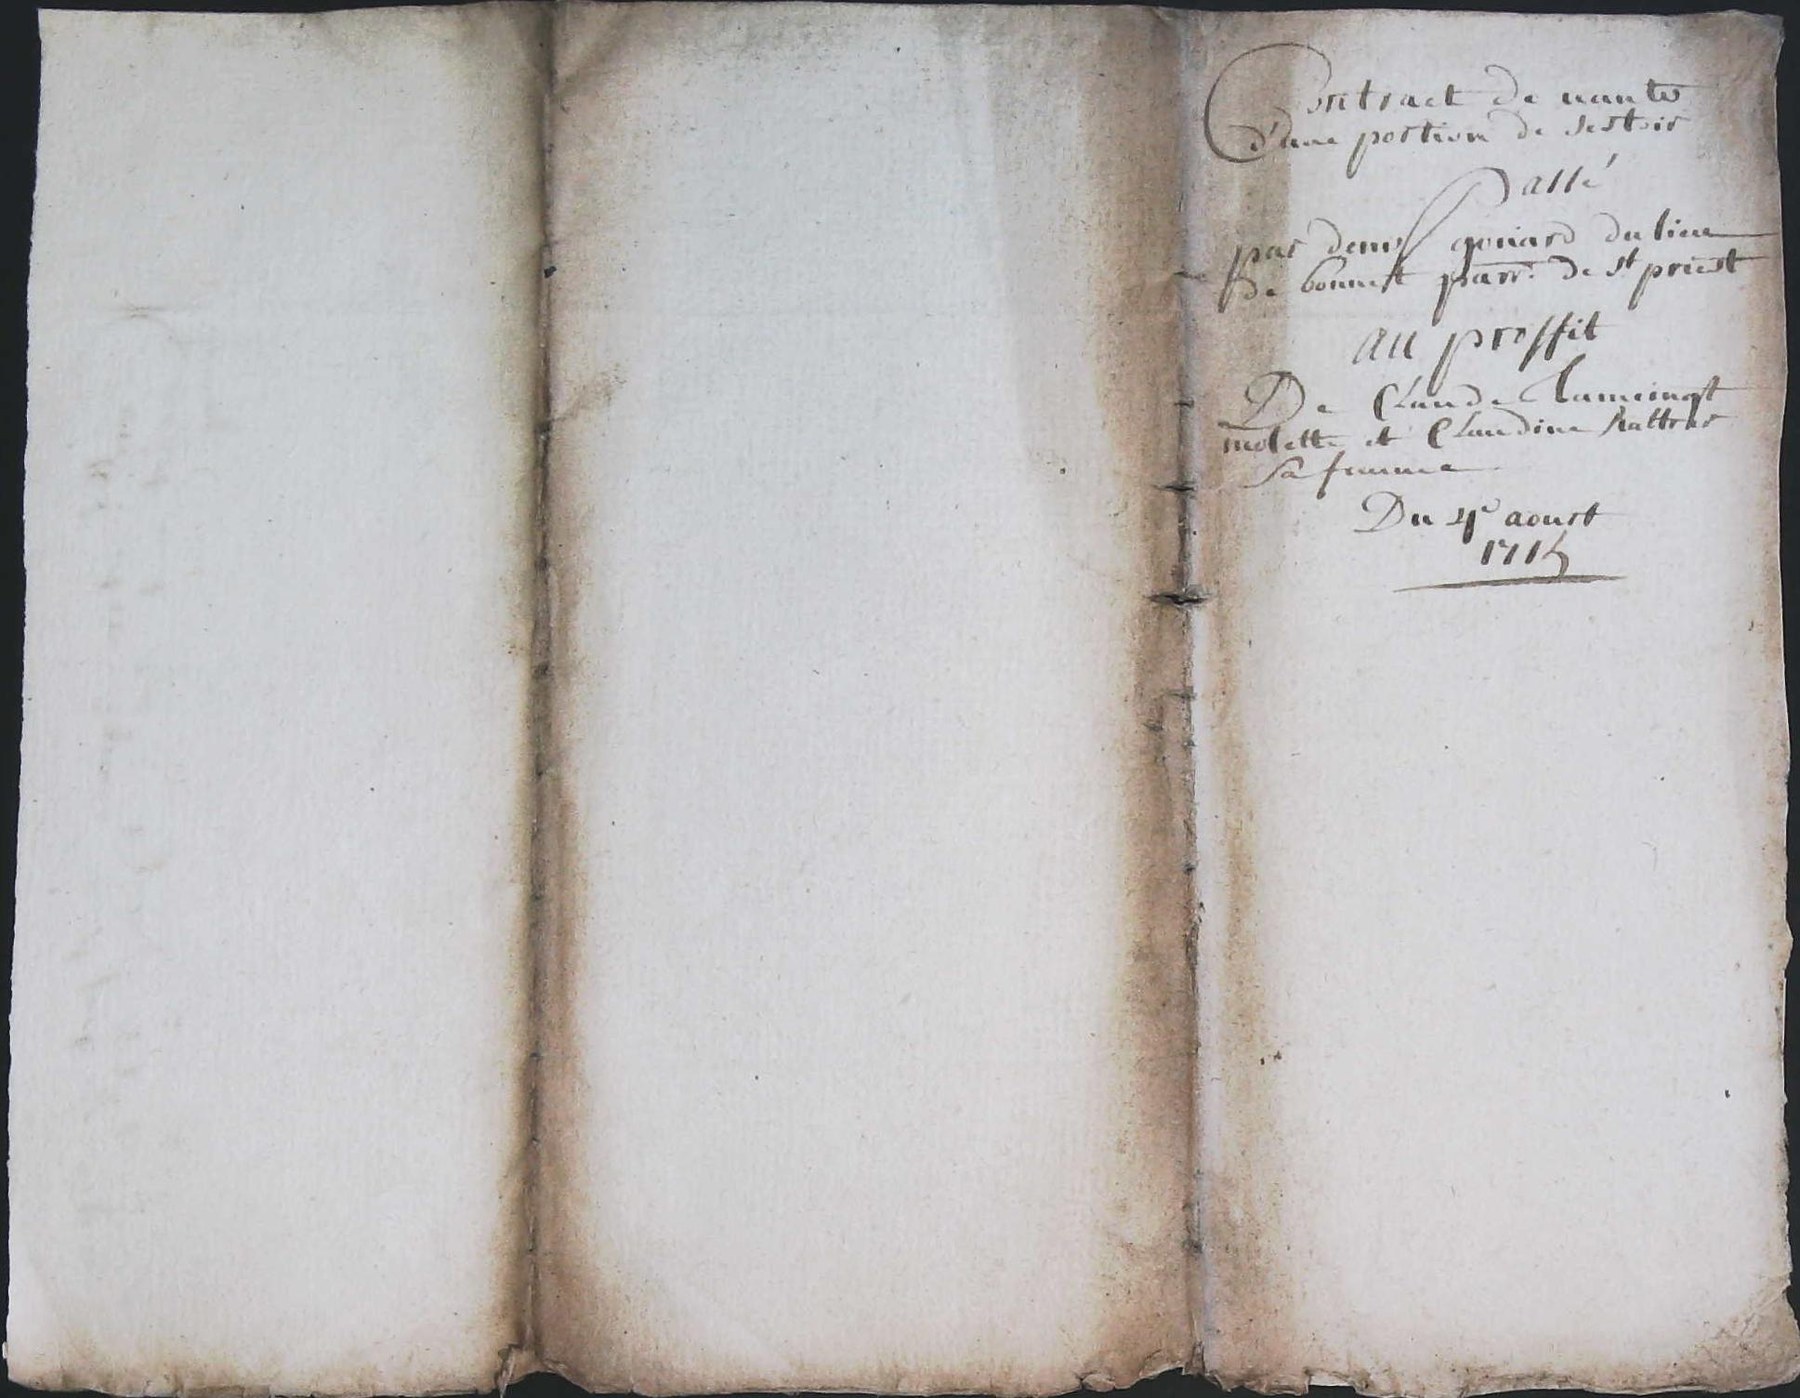 Contract de vante
d'une portion de sestoir
Passé
par denis goniard du lieu
de bonnest parr. de st priest
au proffit
De Claude
molette et Claudine
sa femme
Du 4e aoust
1715